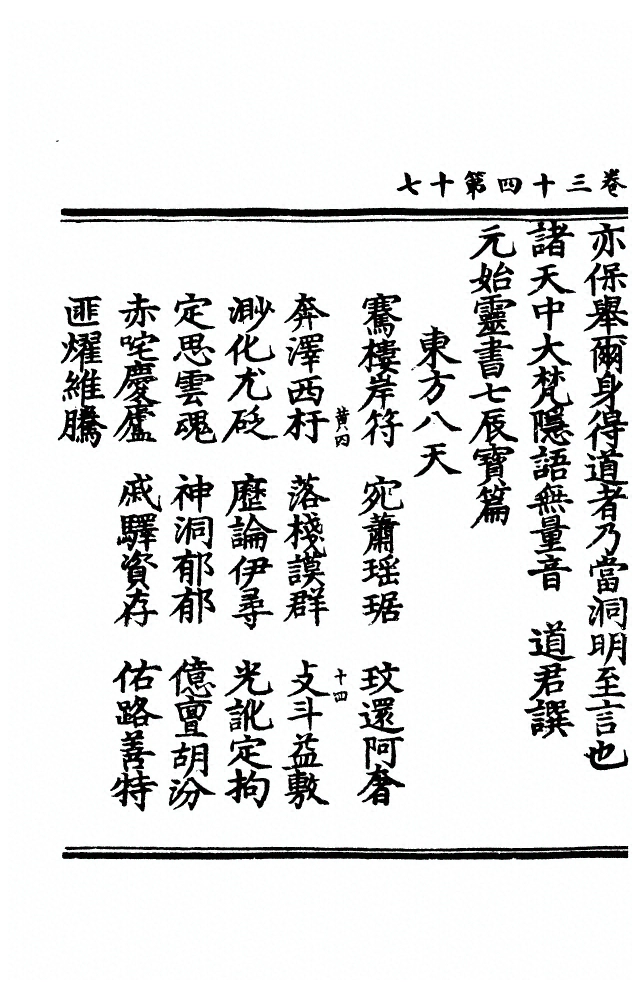 卷三十四第十七
亦保舉爾身得道者乃當洞明至言也
諸天中大梵隱語無量音　道君譔
元始靈書七辰寶篇
東方八天
騫樓岸符　宛蕭瑶琚　玟還阿奢
黄丙
十四
奔澤西杅　落棧謨群　攴斗益敷
渺化尤砭　歷論伊尋　光訛定拘
定思雲魂　神洞郁郁　億亶胡汾
赤咤慶廬　戚驛資存　佑路善特
匪燿維騰